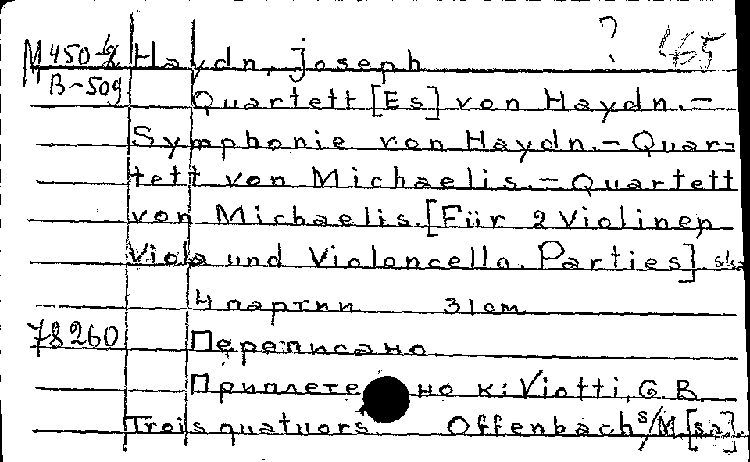 M 450-g Haydn, Joseph ? 465
B-509 Quartett [Es] von Haydn.-
Symphonie von Haydn.-Quar=
tett von Michaelis.-Quartett
von Michaelis.[Für 2 Violinen
Viola und Violoncello. Parties]
4 партии 31 cm
78260 Переписано
Приплетено к: Viotti, G. B.
Trois quatuors. Offenbach s/M. [sa].